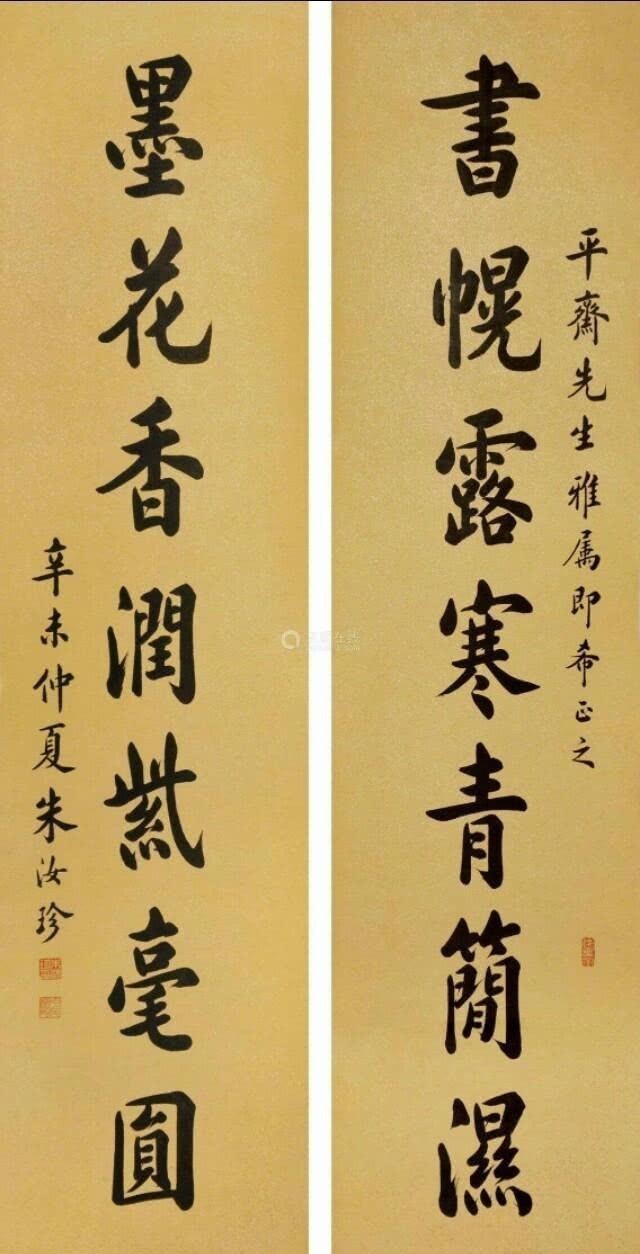 平齋先生雅属即希正之
書幌露寒青簡濕
墨花香潤紫毫圓
辛未仲夏朱汝珍